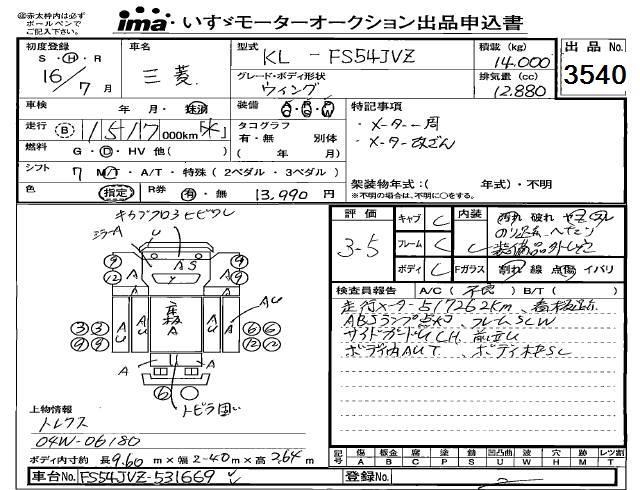 ㊟赤太枠内は必ず
ボールペンで
ご記入下さい。
ima・いすゞモーターオークション出品申込書
初度登録 S・H・R 16/7月
車名 三菱
型式 KL - FS54JVZ
グレード・ボディ形状 ウィング
積載(kg) 14.000
排気量(cc) 12.880
出品No. 3540
車検 年 月・抹消
装備
走行 B 1517 000km
タコグラフ 有・無 別体
( 年 月)
燃料 G・D・HV 他( )
シフト 7 M/T・A/T・特殊(2ペダル・3ペダル)
色 指定 R券 有・無 13,990 円
特記事項
・メーター一周
・メーター改ざん
架装物年式:( 年式)・不明
※不明の場合は、不明に○をする。
キャブフロアヒビワレ
ミラーA U
AS
9 9
12 12
3 3 A AU 座板A AU A 6 6
9 9 12 12
AU
A A
6
トビラ固い
上物情報
トレクス
04W-06180
ボディ内寸約 長 9.60 m×幅 2.40 m×高 2.64 m
車台No. FS54JVZ-531669
評価 3-5
キャブ C
フレーム C
ボディ C
内装 C
Fガラス
汚れ 破れ ヤニ
装備品外し
割れ 線 点傷 イバリ
検査員報告 A/C(不良) B/T( )
走行メーター517262km、看板跡
ABSランプ点灯 フレームSCW
サイドガードU CH 前立U
ボディ内AUT ボディ枠SC
記号 傷A 板金B 腐C 塗P 錆S 凹凸曲U 波W 穴H 跡M レツ割T
登録No.